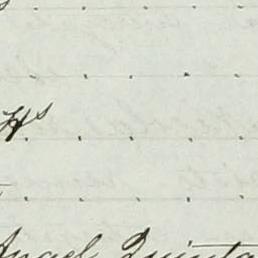 Hs
Angel Quinta